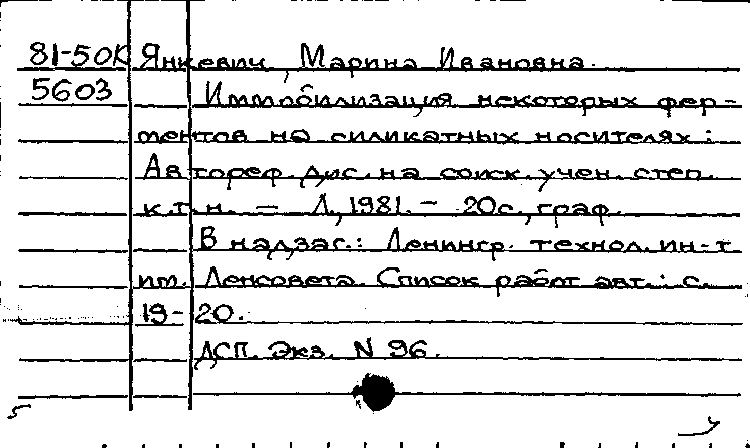 81-50К Янкевич, Марина Ивановна.
5603 Иммобилизация некоторых фер-
ментов на силикатных носителях:
Автореф. дис. на соиск. учен. степ.
к.т.н. — Л., 1981. — 20с., граф.
В надзаг.: Ленингр. технол. ин-т
им. Ленсовета. Список работ авт.: с.
19-20.
ДСП. Экз. N 96.